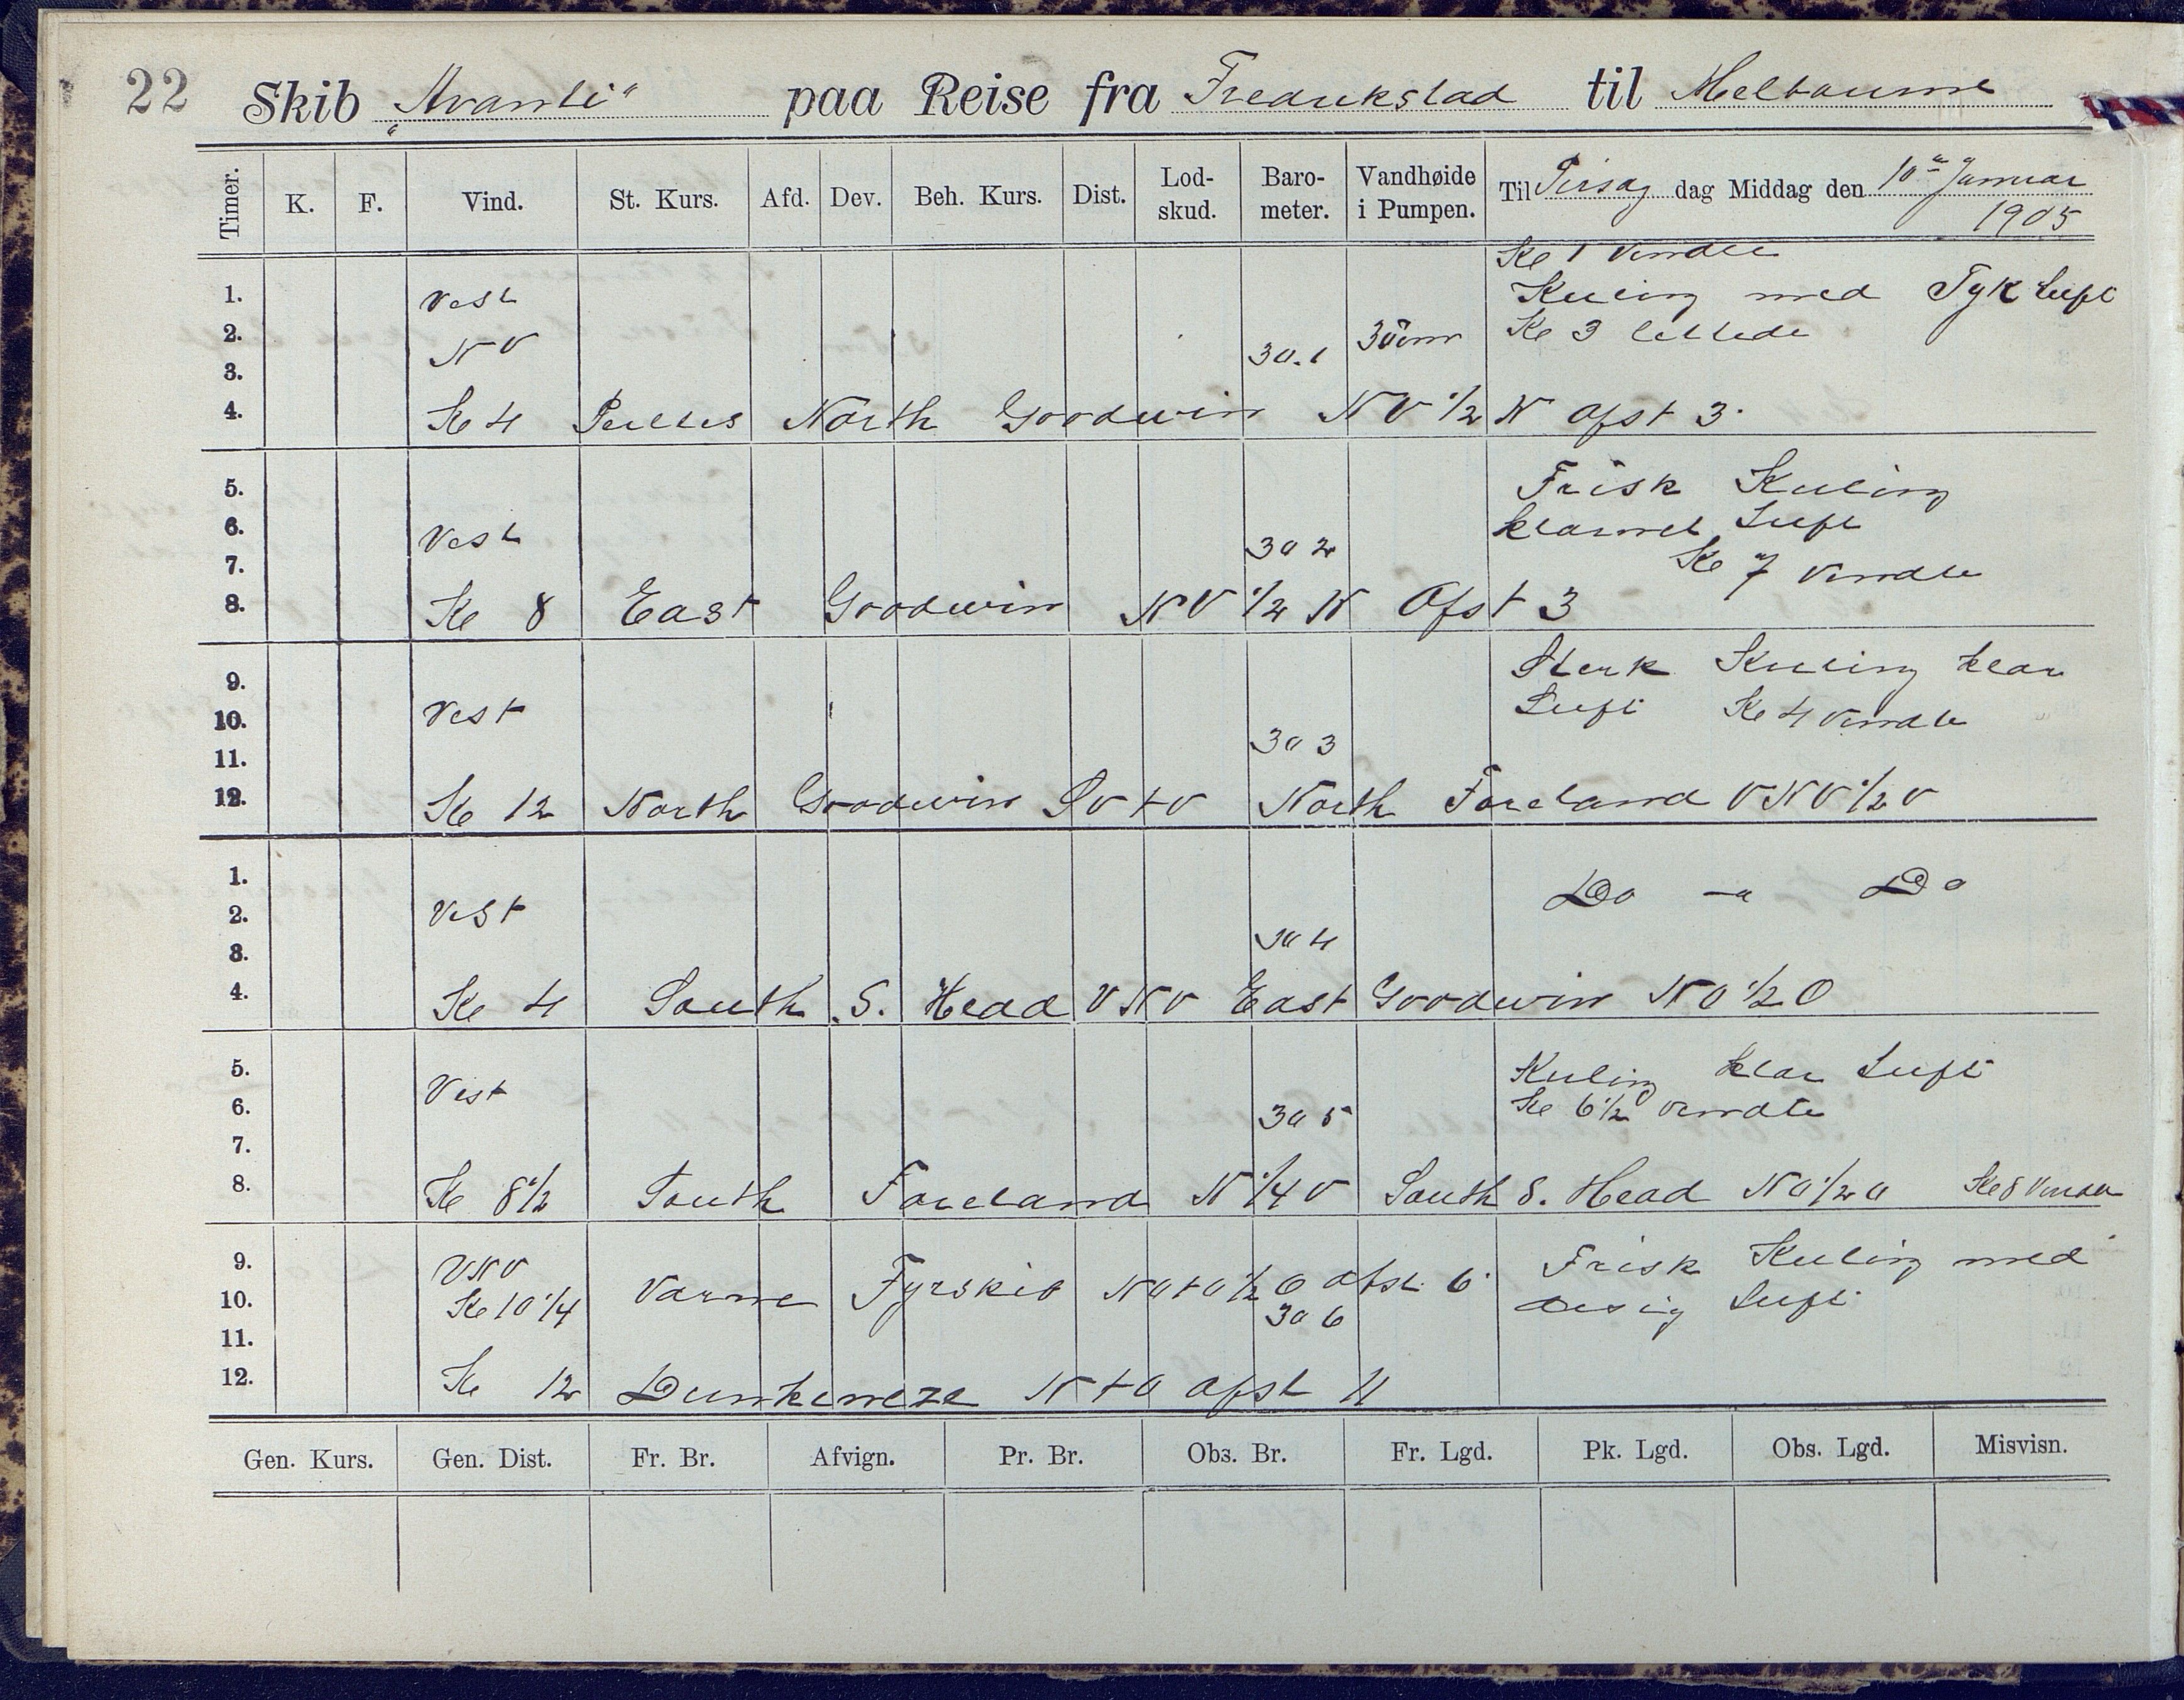 22
Skib „Avanti“ paa Reise fra Fredrikstad til Melbourne
Timer. K. F. Vind. St. Kurs. Afd. Dev. Beh. Kurs. Dist. Lod-skud. Baro-meter. Vandhøide i Pumpen. Til Tirsag dag Middag den 10de Januar
1905
Kl 1 vendte
1. Vest Kuling med Tyk luft
2. NV 30.1 Kl 3 lettede
3.
4. Kl 4 North Goodwin NV ½ N Afst 3
5. Frisk Kuling
6. Vest 30 2 klarnet Luft
7. Kl 7 vendte
8. Kl 8 East Goodwin NV ½ N Afst 3
9. Sterk Kuling klar
10. Vest 30 3 Luft Kl 4 vendte
11.
12. Kl 12 North Goodwin SV t V North Foreland VNV ½ V
1. Do — Do
2. Vest
3. 30 4
4. Kl 4 South S. Head VNV East Goodwin NO ½ O
5. Vest Kuling klar Luft
6. 30 5 Kl 6½ vendte
7.
8. Kl 8½ South Foreland N ¼ V South S. Head NO ½ O Kl 8 vendte
9. VNV Frisk Kuling med
10. Kl 10¼ Varne Fyrskib NO t O ½ O Afst. 6 disig Luft
11. 30 6
12. Kl 12 Dunkeneze N t O Afst 11
Gen. Kurs. Gen. Dist. Fr. Br. Afvign. Pr. Br. Obs. Br. Fr. Lgd. Pk. Lgd. Obs. Lgd. Misvisn.